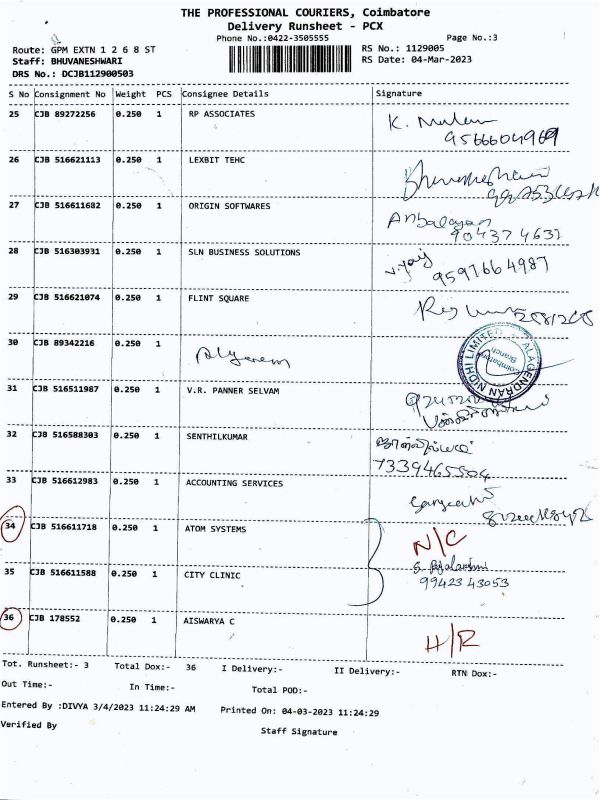 THE PROFESSIONAL COURIERS, Coimbatore
Delivery Runsheet - PCX
Phone No.:0422-3505555
Page No.:3
Route: GPM EXTN 1 2 6 8 ST
RS No.: 1129005
Staff: BHUVANESHWARI
RS Date: 04-Mar-2023
DRS No.: DCJB112900503
S No Consignment No Weight PCS Consignee Details Signature
25 CJB 89272256 0.250 1 RP ASSOCIATES
K.
9566604969
26 CJB 516621113 0.250 1 LEXBIT TEHC
27 CJB 516611682 0.250 1 ORIGIN SOFTWARES
Anbalagan
904374631
28 CJB 516303931 0.250 1 SLN BUSINESS SOLUTIONS
9597664987
29 CJB 516621074 0.250 1 FLINT SQUARE
30 CJB 89342216 0.250 1
ALAGENDRAN NIDHI LIMITED
Coimbatore
Branch
31 CJB 516511987 0.250 1 V.R. PANNER SELVAM
32 CJB 516588303 0.250 1 SENTHILKUMAR
7339465504
33 CJB 516612983 0.250 1 ACCOUNTING SERVICES
34 CJB 516611718 0.250 1 ATOM SYSTEMS
N/C
35 CJB 516611588 0.250 1 CITY CLINIC
99423 43053
36 CJB 178552 0.250 1 AISWARYA C
H/R
Tot. Runsheet:- 3 Total Dox:- 36 I Delivery:- II Delivery:- RTN Dox:-
Out Time:- In Time:- Total POD:-
Entered By :DIVYA 3/4/2023 11:24:29 AM Printed On: 04-03-2023 11:24:29
Verified By
Staff Signature